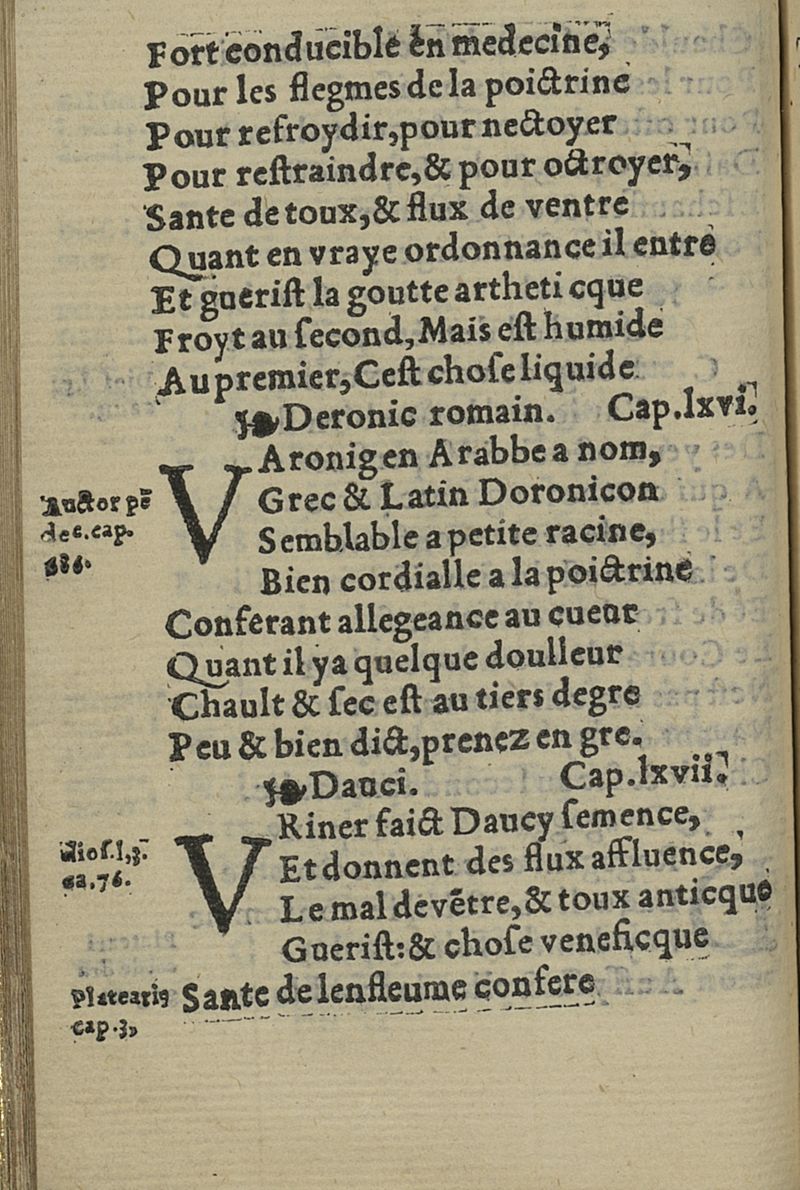 Fort conducible en medecine,
Pour les flegmes de la poictrine
Pour refroydir, pour nectoyer
Pour restraindre, & pour octroyer,
Sante de toux, & flux de ventre
Quant en vraye ordonnance il entre
Et guerist la goutte artheti cque
Froyt au second, Mais est humide
Au premier, Cest chose liquide
Deronic romain. Cap. lxvi.
VAronig en Arabbe a nom,
Auctor pē
Grec & Latin Doronicon
dec. cap.
Semblable a petite racine,
Bien cordialle a la poictrine
Conferant allegeance au cueur
Quant il ya quelque doulleur
Chault & sec est au tiers degre
Peu & bien dict, prenez en gre.
Dauci. Cap. lxvii.
VRiner faict Daucy semence,
Et donnent des flux affluence,
ca. 76.
Le mal de vētre, & toux anticque
Guerist: & chose veneficque
Platearius
Sante de lenfleume confere
cap. 3,